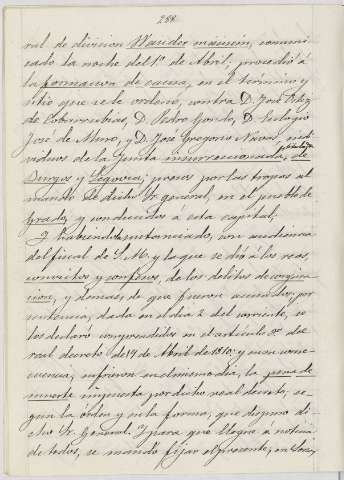 288
ral de division Wander máisen, comuni-
cado la noche del 1º de Abril; procedió á
la formacion de causa, en el término y
sitio que se le ordenó, contra D. José Ortiz
de Cobarrubias, D. Pedro Gordo, D. Eulogio
José de Muro, y D. José Gregorio Navas, indi-
viduos de la Junta insurreccionada, de
Burgos y Segovia; presos por las tropas al
mando de dicho Sr. general, en el pueblo de
Grado, y conducidos a esta capital;
Y habiendola sustanciado, con audiencia
del fiscal de S. M. y la que se dió á los reos,
convictos y confesos, de los delitos de conspira-
cion, y demas, de que fueron acusados; por
sentencia, dada en el dia 2 del corriente, se
los declaró comprendidos en el artículo 2º del
real decreto de 19 de Abril de 1810: y en su conse-
cuencia, sufrieron en el mismo dia, la pena de
muerte impuesta por dicho real decreto, se-
gun la órden y en la forma, que dispuso di-
cho Sr. General. Y para que llegue á noticia
de todos, se mandó fijar el presente, en Soria,